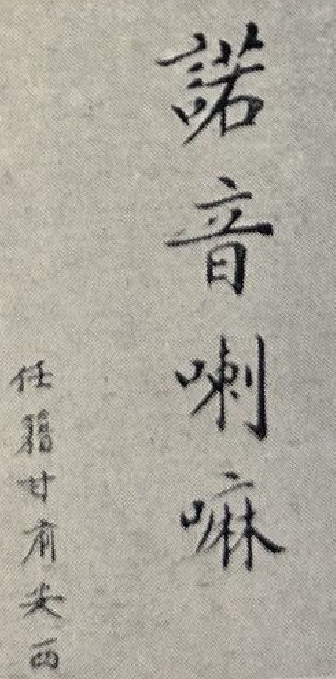 諾音喇嘛
任籍甘省安西